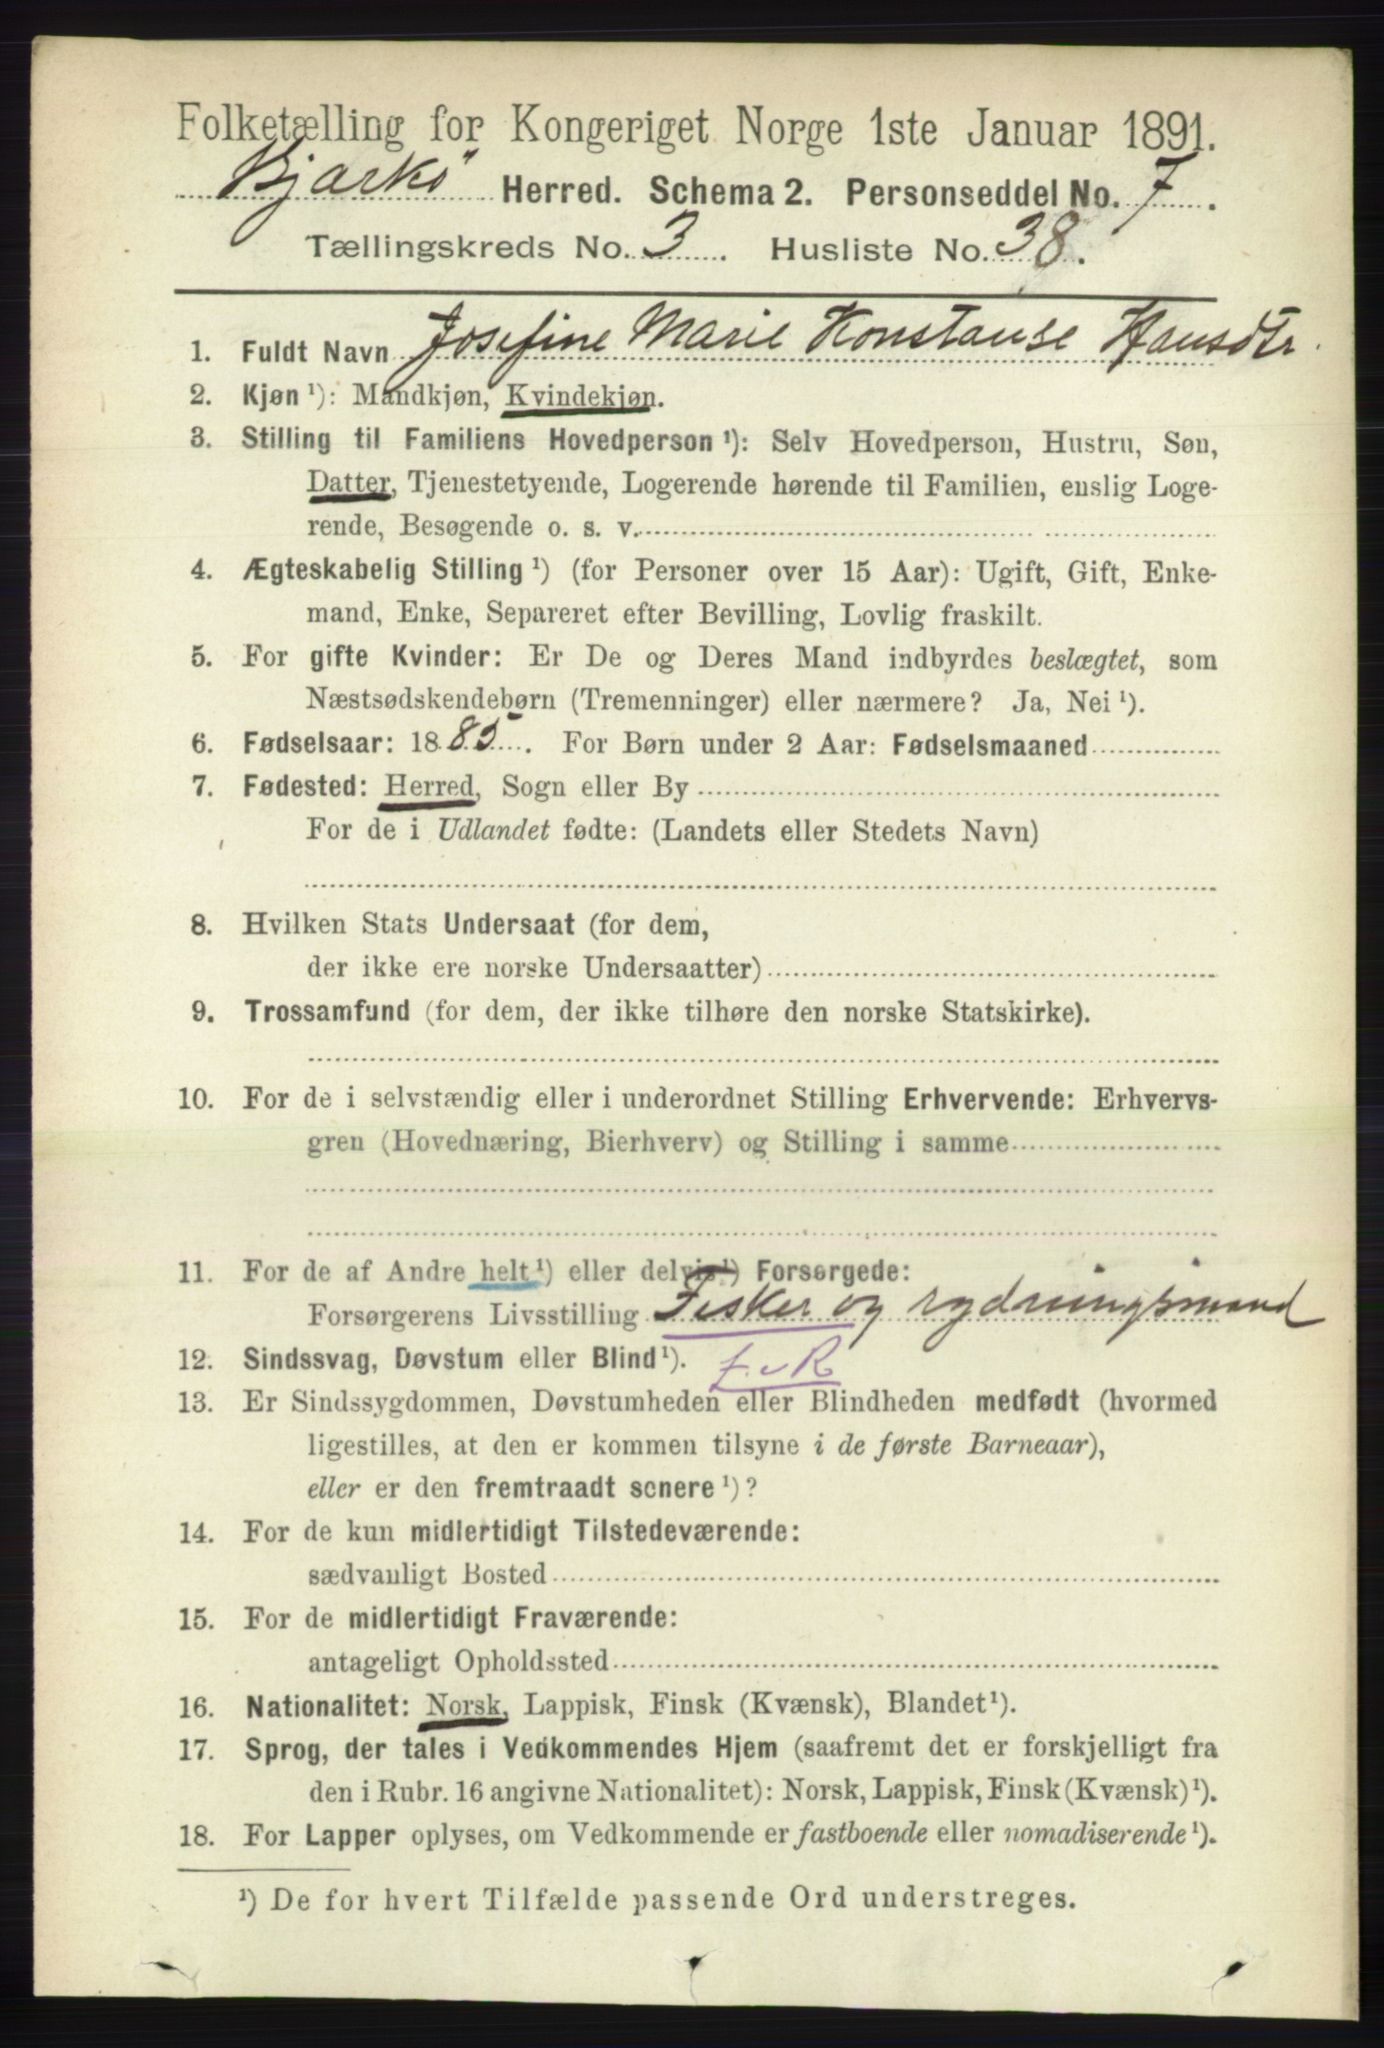 Folketælling for Kongeriget Norge 1ste Januar 1891.
Bjarkö Herred. Schema 2. Personseddel No. 7.
Tællingskreds No. 3. Husliste No. 38.
1. Fuldt Navn Josefine Marie Konstanse Hansdtr.
2. Kjøn ¹): Mandkjøn, Kvindekjøn.
3. Stilling til Familiens Hovedperson ¹): Selv Hovedperson, Hustru, Søn,
Datter, Tjenestetyende, Logerende hørende til Familien, enslig Loge-
rende, Besøgende o. s. v.
4. Ægteskabelig Stilling ¹) (for Personer over 15 Aar): Ugift, Gift, Enke-
mand, Enke, Separeret efter Bevilling, Lovlig fraskilt.
5. For gifte Kvinder: Er De og Deres Mand indbyrdes beslægtet, som
Næstsødskendebørn (Tremenninger) eller nærmere? Ja, Nei ¹).
6. Fødselsaar: 1885. For Børn under 2 Aar: Fødselsmaaned
7. Fødested: Herred, Sogn eller By
For de i Udlandet fødte: (Landets eller Stedets Navn)
8. Hvilken Stats Undersaat (for dem,
der ikke ere norske Undersaatter)
9. Trossamfund (for dem, der ikke tilhøre den norske Statskirke).
10. For de i selvstændig eller i underordnet Stilling Erhvervende: Erhvervs-
gren (Hovednæring, Bierhverv) og Stilling i samme
11. For de af Andre helt ¹) eller delvis ¹) Forsørgede:
Forsørgerens Livsstilling Fisker og rydningsmand
12. Sindssvag, Døvstum eller Blind ¹). F. R
13. Er Sindssygdommen, Døvstumheden eller Blindheden medfødt (hvormed
ligestilles, at den er kommen tilsyne i de første Barneaar),
eller er den fremtraadt senere ¹)?
14. For de kun midlertidigt Tilstedeværende:
sædvanligt Bosted
15. For de midlertidigt Fraværende:
antageligt Opholdssted
16. Nationalitet: Norsk, Lappisk, Finsk (Kvænsk), Blandet ¹).
17. Sprog, der tales i Vedkommendes Hjem (saafremt det er forskjelligt fra
den i Rubr. 16 angivne Nationalitet): Norsk, Lappisk, Finsk (Kvænsk) ¹).
18. For Lapper oplyses, om Vedkommende er fastboende eller nomadiserende ¹).
¹) De for hvert Tilfælde passende Ord understreges.